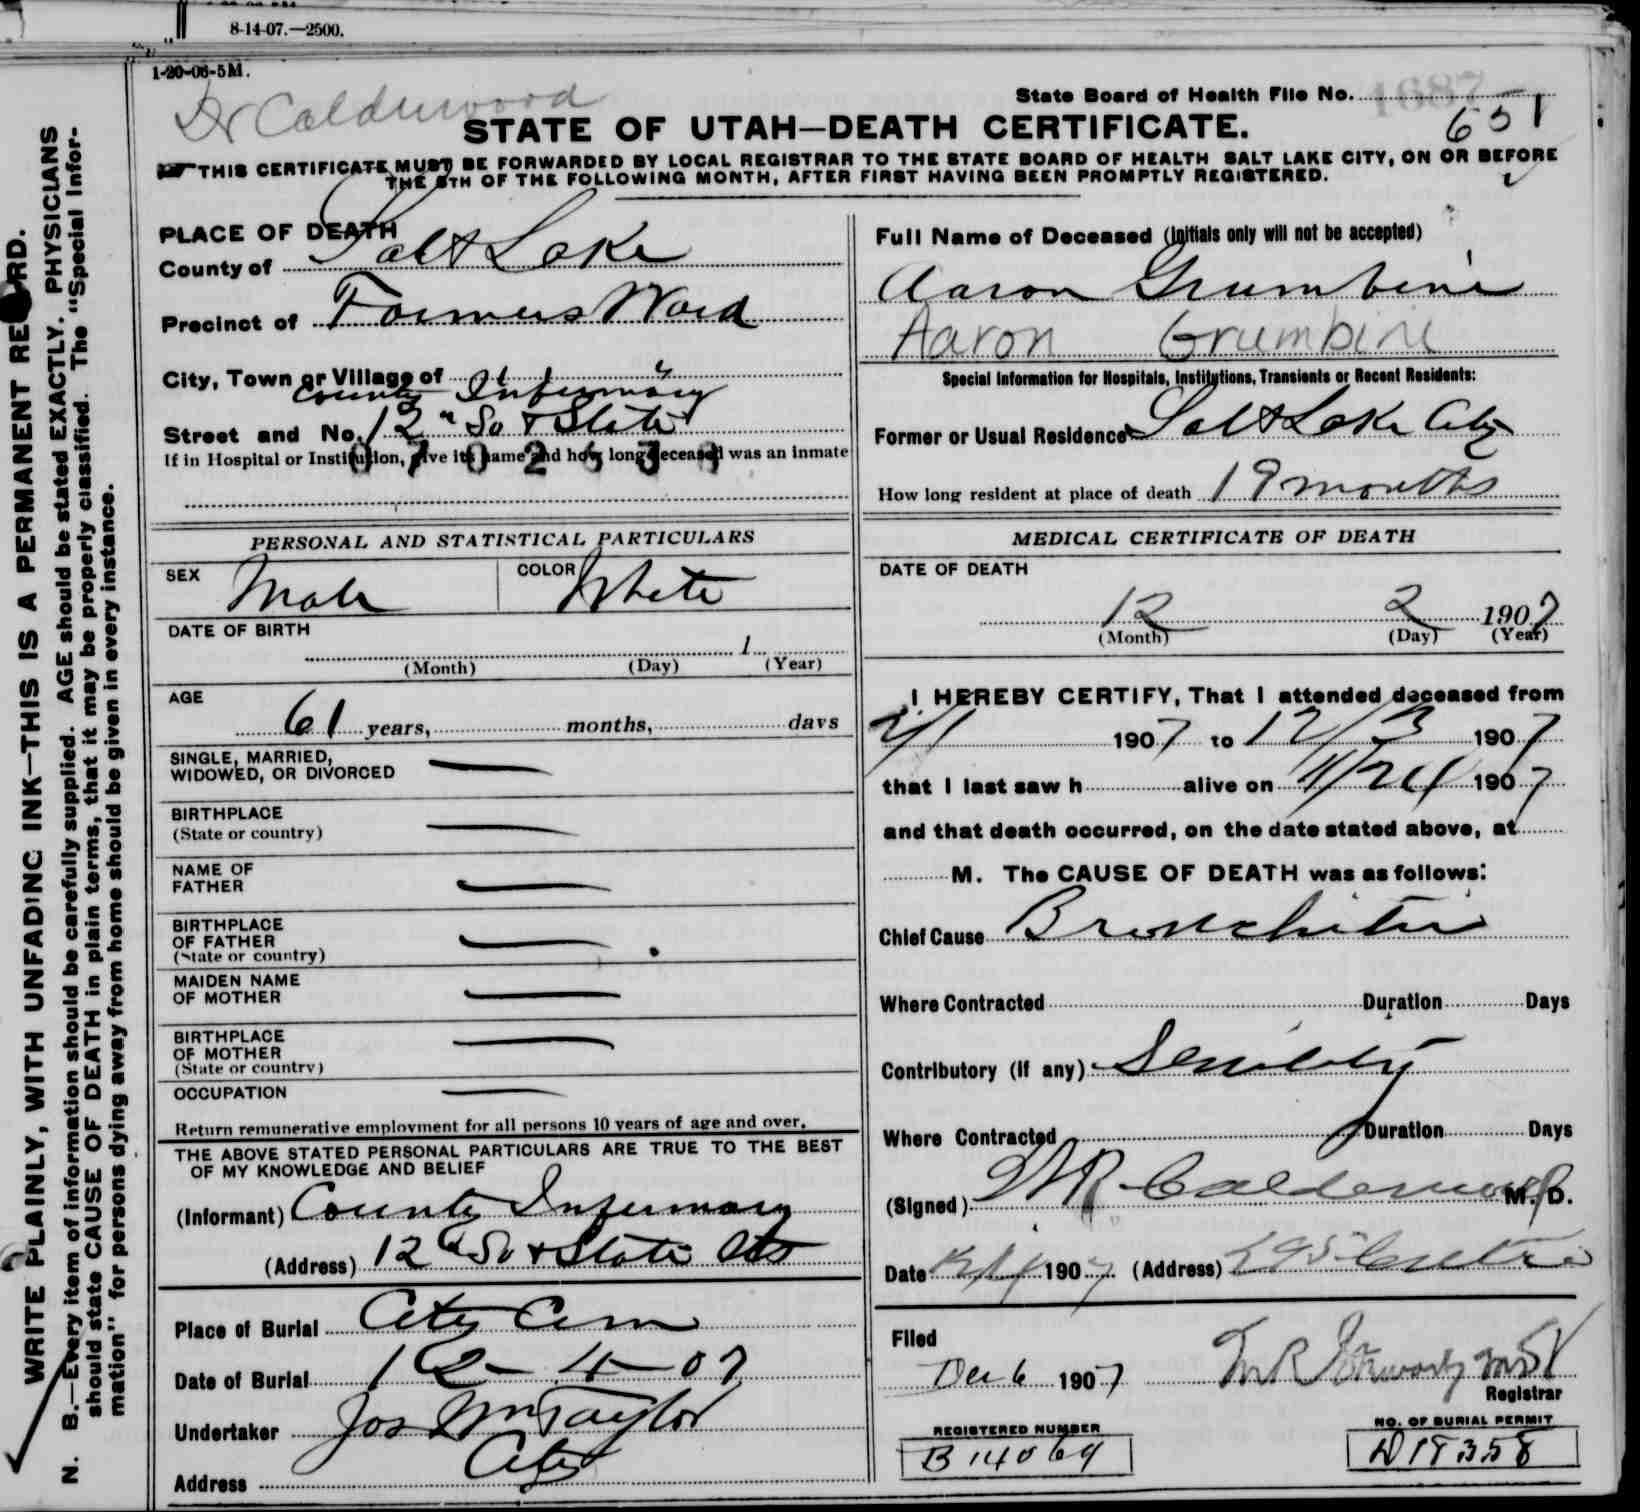 8-14-07.—2500.
1-20-06-5M.
Dr Calderwood
State Board of Health File No. 1687
651
STATE OF UTAH—DEATH CERTIFICATE.
THIS CERTIFICATE MUST BE FORWARDED BY LOCAL REGISTRAR TO THE STATE BOARD OF HEALTH SALT LAKE CITY, ON OR BEFORE
THE 5TH OF THE FOLLOWING MONTH, AFTER FIRST HAVING BEEN PROMPTLY REGISTERED.
WRITE PLAINLY, WITH UNFADING INK—THIS IS A PERMANENT RECORD.
N. B.—Every item of information should be carefully supplied. AGE should be stated EXACTLY. PHYSICIANS
should state CAUSE OF DEATH in plain terms, that it may be properly classified. The "Special Infor-
mation" for persons dying away from home should be given in every instance.
PLACE OF DEATH
County of Salt Lake
Precinct of Farmers Ward
City, Town or Village of
County Infirmary
Street and No. 12" So & State
If in Hospital or Institution, give its name and how long deceased was an inmate
PERSONAL AND STATISTICAL PARTICULARS
SEX Male COLOR White
DATE OF BIRTH
1
(Month) (Day) (Year)
AGE
61 years, months, days
SINGLE, MARRIED,
WIDOWED, OR DIVORCED —
BIRTHPLACE
(State or country) —
NAME OF
FATHER —
BIRTHPLACE
OF FATHER
(State or country) —
MAIDEN NAME
OF MOTHER —
BIRTHPLACE
OF MOTHER
(State or country) —
OCCUPATION —
Return remunerative employment for all persons 10 years of age and over.
THE ABOVE STATED PERSONAL PARTICULARS ARE TRUE TO THE BEST
OF MY KNOWLEDGE AND BELIEF
(Informant) County Infirmary
(Address) 12" So & State Sts
Place of Burial City Cem
Date of Burial 12-4-07
Undertaker Jos Wm Taylor
Address City
Full Name of Deceased (Initials only will not be accepted)
Aaron Grumbine
Aaron Grumbine
Special Information for Hospitals, Institutions, Transients or Recent Residents:
Former or Usual Residence Salt Lake City
How long resident at place of death 19 months
MEDICAL CERTIFICATE OF DEATH
DATE OF DEATH
12 2 1907
(Month) (Day) (Year)
I HEREBY CERTIFY, That I attended deceased from
2/1 1907 to 12/3 1907
that I last saw h alive on 11/24 1907
and that death occurred, on the date stated above, at
M. The CAUSE OF DEATH was as follows:
Chief Cause Bronchitis
Where Contracted Duration Days
Contributory (if any) Senility
Where Contracted Duration Days
(Signed) Calderwood M. D.
Date 1907 (Address)
Filed
Dec 6 1907
Registrar
REGISTERED NUMBER
B 14069
NO. OF BURIAL PERMIT
D 18358